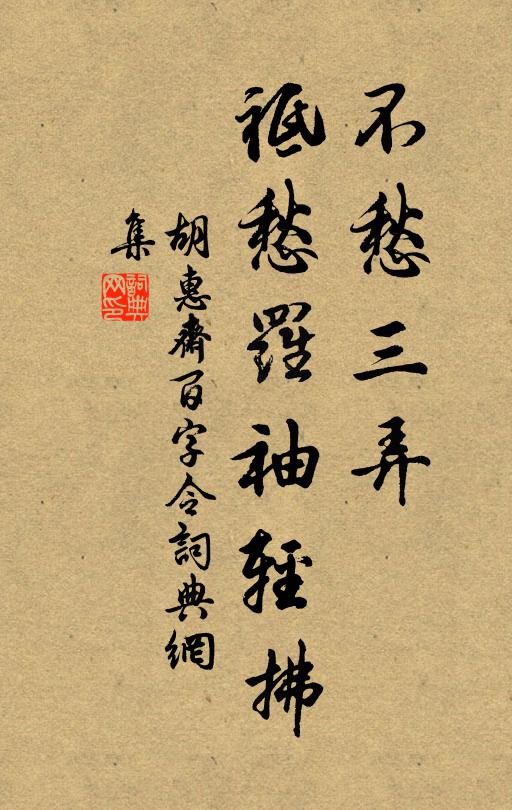 不愁三弄
祗愁羅袖輕拂
胡惠齋百字令詞典網
集
詞典
网印